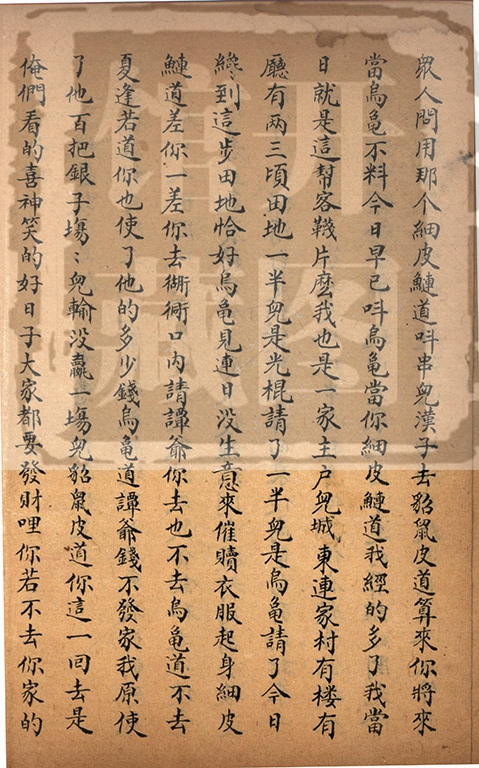 眾人問用那个細皮鰱道呌串兒漢子去貂鼠皮道算來你將來
當烏龜不料今日早已呌烏龜當你細皮鰱道我經的多了我當
日就是這幫客韈片麽我也是一家主户兒城東連家村有楼有
廳有兩三頃田地一半兒是光棍請了一半兒是烏龜請了今日
纔到這步田地恰好烏龜見連日没生意來催贖衣服起身細皮
鰱道差你一差你去衚衕口内請譚爺你去也不去烏龜道不去
夏逢若道你也使了他的多少錢烏龜道譚爺錢不發家我原使
了他百把銀子塲〻兒輸没贏一塲兒貂鼠皮道你這一回去是
俺們看的喜神笑的好日子大家都要發財哩你若不去你家的
开图
馆藏